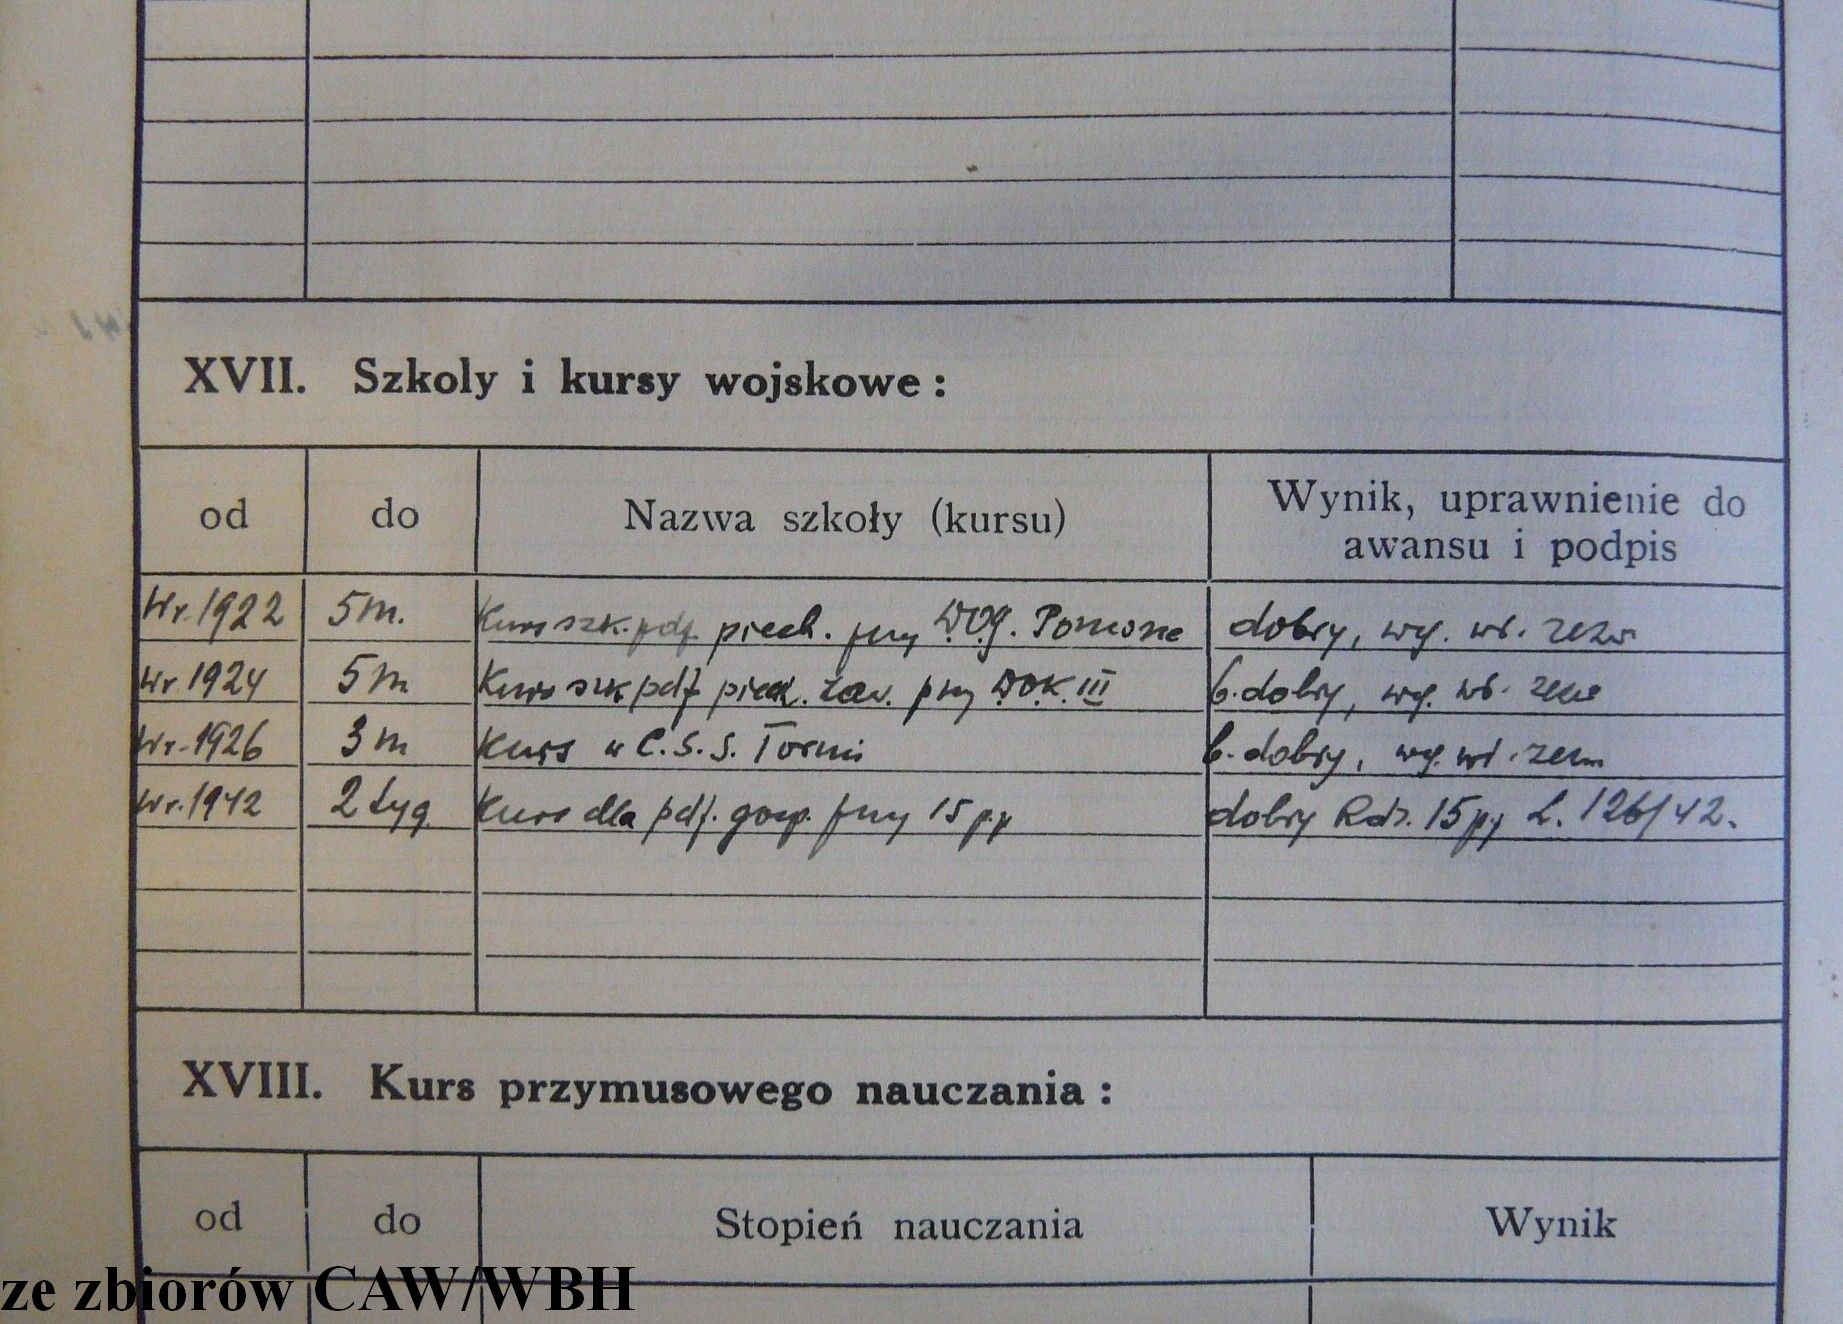 XVII. Szkoly i kursy wojskowe :
od do Nazwa szkoły (kursu) Wynik, uprawnienie do
awansu i podpis
Wr. 1922 5 m. Kurs szk. pdf. piech. przy D.O.G. Pomorze dobry, wg. wł. zezn
Wr 1924 5 m Kurs szk pdf piech. zaw. przy D.O.K. III b. dobry, wg. wł. zezn
Wr. 1926 3 m Kurs w C.S.S. Toruń b. dobry, wg. wł. zezn
Wr. 1942 2 tyg Kurs dla pdf. gosp. przy 15 pp dobry Rdz. 15 pp L. 126/42.
XVIII. Kurs przymusowego nauczania :
od do Stopień nauczania Wynik
ze zbiorów CAW/WBH